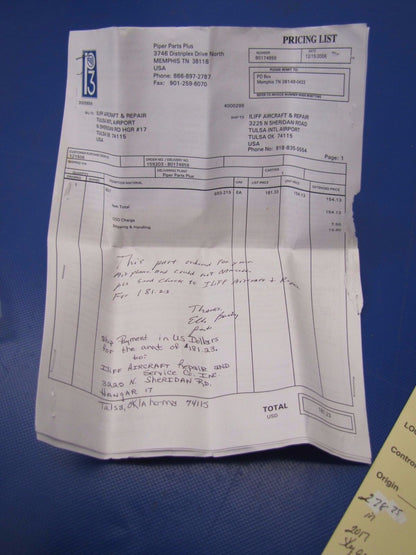 PRICING LIST
Piper Parts Plus
3746 Distriplex Drive North
MEMPHIS TN 38118
USA
Phone: 866-897-2787
Fax: 901-259-6070
NUMBER
80174868
DATE
12/15/2008
PLEASE REMIT TO:
PO Box
Memphis TN
4000298
ILIFF AIRCRAFT & REPAIR
TULSA INTL AIRPORT
N SHERIDAN RD HGR #17
TULSA OK 74115
USA
SHIP TO
ILIFF AIRCRAFT & REPAIR
3225 N SHERIDAN ROAD
TULSA INTL AIRPORT
TULSA OK 74115
USA
Phone No: 918-835-5554
Page: 1
121508
ORDER NO. / DELIVERY NO.
DELIVERING PLANT
Piper Parts Plus
CARTON
1
DESCRIPTION MATERIAL
UM
LIST PRICE
UNIT PRICE
EXTENDED PRICE
EA
181.33
154.13
154.13
Item Total
154.13
Shipping & Handling
This part ordered for your
Airplane and could not
pls send check to ILIFF Aircraft & Repair
For 181.23.
Thanks,
Ship Payment in US Dollars
for the amt of $181.23.
to:
ILIFF AIRCRAFT Repair AND
Service Co. INC
3220 N. SHERIDAN RD.
HANGAR 17
Tulsa, Oklahoma 74115
TOTAL
USD
181.23
LO
Contro
Origin
278 75
2017